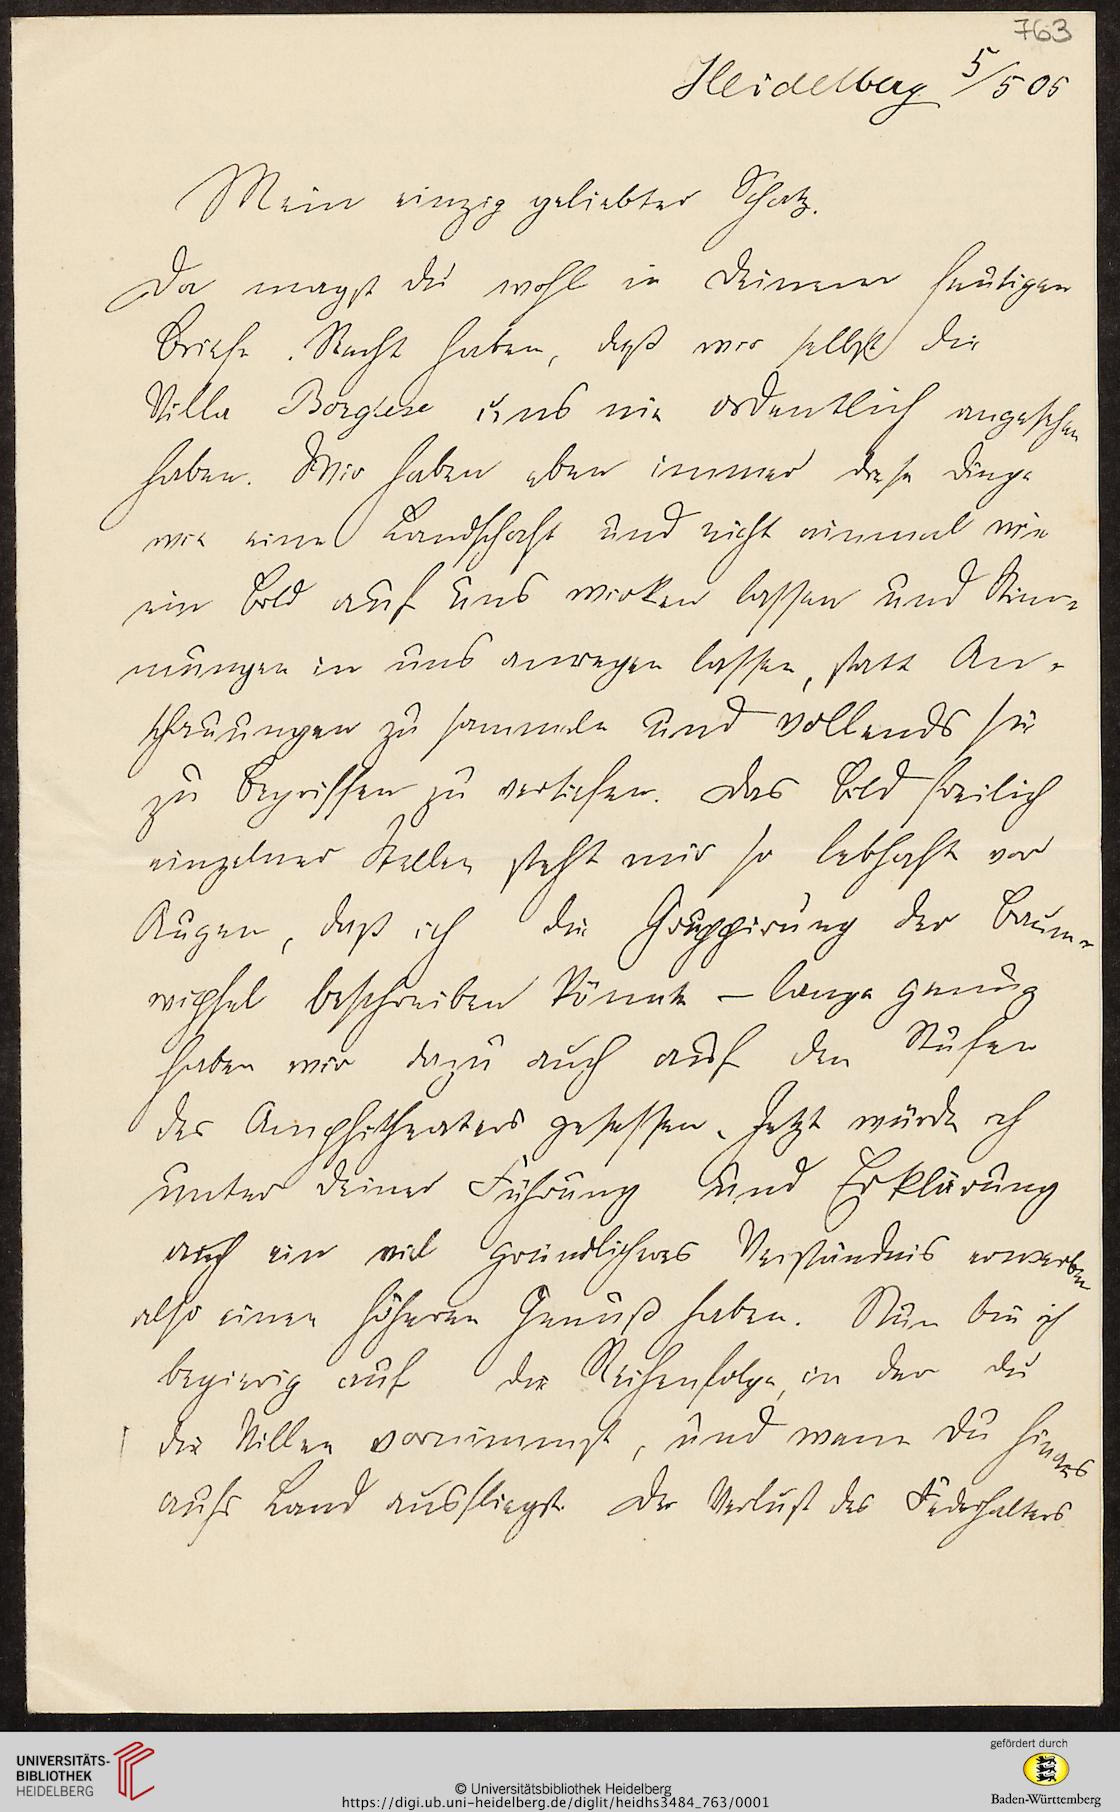 763
Heidelberg 5/5 05
Mein einzig geliebter Schatz.
Da magst du wohl in Deinem heutigen
Briefe Recht haben, daß wir selbst die
Villa Borghese uns nie ordentlich angesehen
haben. Wir haben eben immer diese Dinge
wie eine Landschaft und nicht einmal wie
ein Bild auf uns wirken lassen und Stim-
mungen in uns anregen lassen, statt An-
schauungen zu sammeln und vollends sie
zu Begriffen zu vertiefen. Das Bild freilich
einzelner Stellen steht mir so lebhaft vor
Augen, daß ich die Gruppirung der Baum-
wipfel beschreiben könnte – lange genug
haben wir dazu auch auf den Stufen
des Amphitheaters gesessen. Jetzt würde ich
unter Deiner Führung und Erklärung
auch ein viel gründlicheres Verständnis erwerben
also einen höheren Genuß haben. Nun bin ich
begierig auf die Reihenfolge, in der du
die Villen vornimmst, und wann du hinaus
aufs Land ausfliegst. Der Verlust des Federhalters
UNIVERSITÄTS-
BIBLIOTHEK
HEIDELBERG
© Universitätsbibliothek Heidelberg
https://digi.ub.uni-heidelberg.de/diglit/heidhs3484_763/0001
gefördert durch
Baden-Württemberg